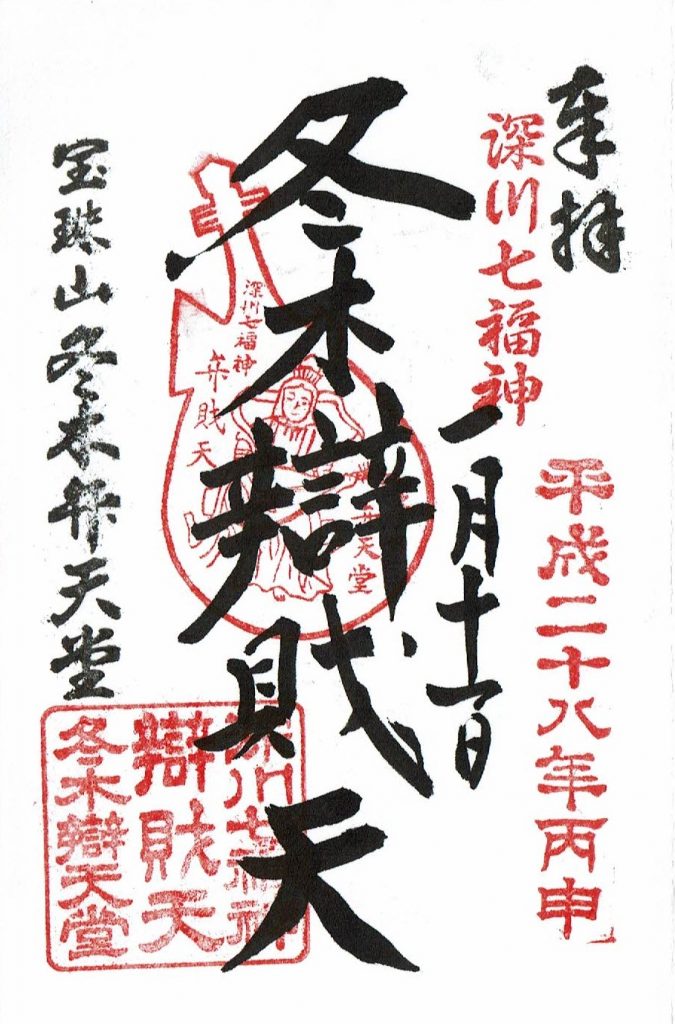 奉拝
深川七福神
平成二十八年丙申
一月十一日
冬木辯財天
深川七福神
弁財天
天堂
宝珠山冬木弁天堂
深川七福神
辯財天
冬木辯天堂